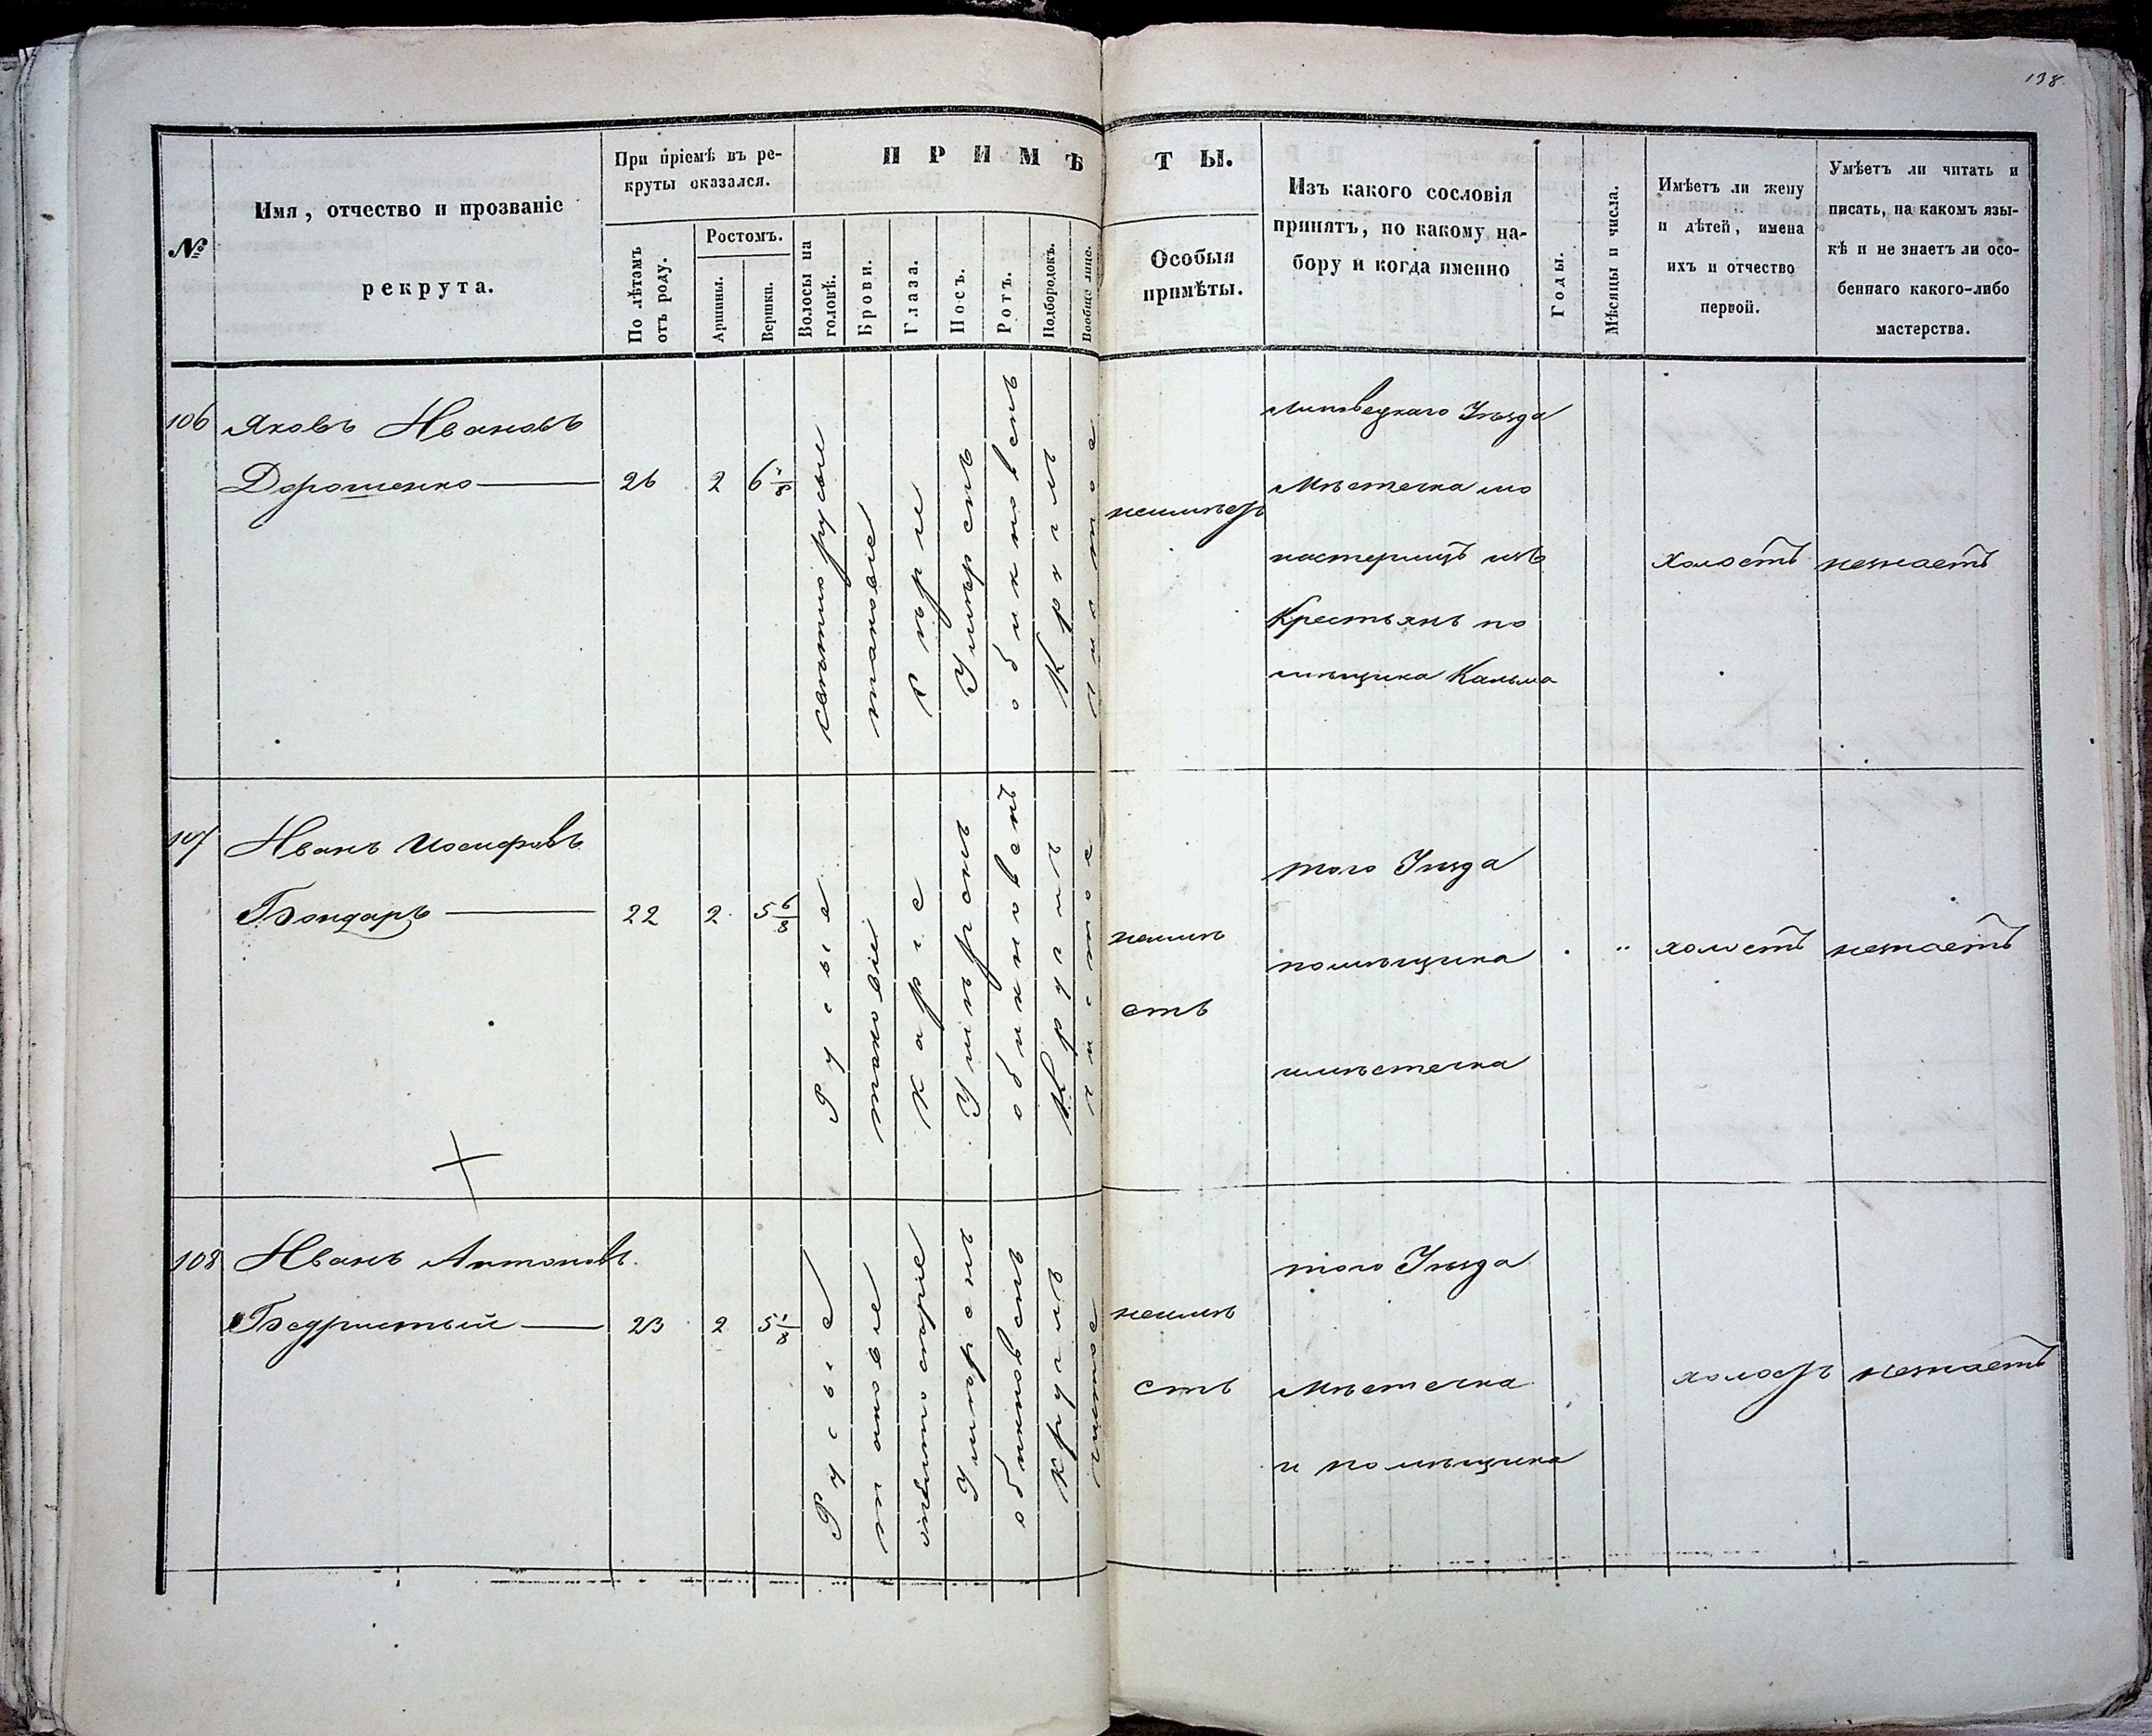 138
№
Имя, отчество и прозваніе
рекрута.
При пріемѣ въ ре-
круты оказался.
По лѣтамъ
отъ роду.
Ростомъ.
Аршины.
Вершки.
ПРИМѢ
ТЫ.
Волосы на
головѣ.
Брови.
Глаза.
Носъ.
Ротъ.
Подбородокъ.
Вообще лице.
Особыя
примѣты.
Изъ какого сословія
принятъ, по какому на-
бору и когда именно
Годы.
Мѣсяцы и числа.
Имѣетъ ли жену
и дѣтей, имена
ихъ и отчество
первой.
Умѣетъ ли читать и
писать, на какомъ язы-
кѣ и не знаетъ ли осо-
беннаго какого-либо
мастерства.
106
Яковъ Ивановъ
Дорошенко
26
2
6 1/8
светло русые
таковые
Умѣрєнъ
обикновенъ
Круглъ
чистое
неимѣет
Липовецкаго Уѣзда
Мѣстечка мо
настерищъ изъ
Крестьянъ по
мѣщика
холостъ
незнаетъ
107
Иванъ Иосифовъ
Бондаръ
22
2
5 6/8
Русые
таковые
Каріе
Умѣренъ
обикновенъ
Круглъ
чистое
неимѣ
етъ
того Уѣзда
помѣщика
имѣстечка
холостъ
незнаетъ
108
Иванъ Антоновъ
Бедристый
23
2
5 1/8
Русые
таковые
Умѣренъ
обикновенъ
Круглъ
чистое
неимѣ
етъ
того Уѣзда
Мѣстечка
и помѣщика
холост
незнаетъ